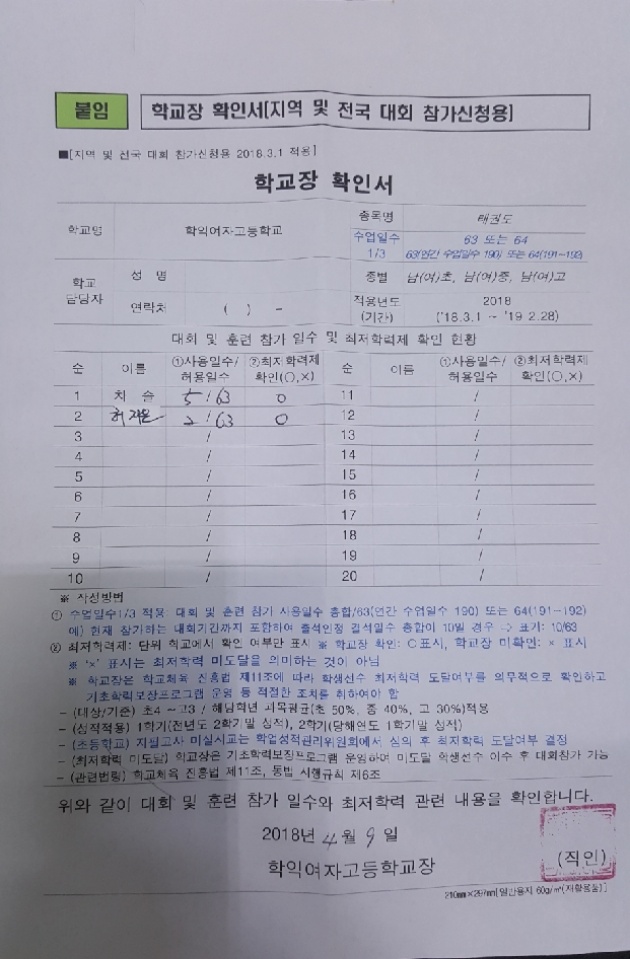 붙임
학교장 확인서[지역 및 전국 대회 참가신청용]
■[지역 및 전국 대회 참가신청용 2018.3.1 적용]
학교장 확인서
학교명 학익여자고등학교 종목명 태권도
수업일수 1/3 63 또는 64
63(연간 수업일수 190) 또는 64(191~192)
학교 담당자 성 명 종별 남(여)초, 남(여)중, 남(여)고
연락처 ( ) - 적용년도 (기간) 2018
('18.3.1 ~ '19 2.28)
대회 및 훈련 참가 일수 및 최저학력제 확인 현황
순 이름 ①사용일수/허용일수 ②최저학력제 확인(○,×) 순 이름 ①사용일수/허용일수 ②최저학력제 확인(○,×)
1 슬 5/63 0 11 /
2 허 2/63 0 12 /
3 / 13 /
4 / 14 /
5 / 15 /
6 / 16 /
7 / 17 /
8 / 18 /
9 / 19 /
10 / 20 /
※ 작성방법
① 수업일수1/3 적용: 대회 및 훈련 참가 사용일수 총합/63(연간 수업일수 190) 또는 64(191~192)
예) 현재 참가하는 대회기간까지 포함하여 출석인정 결석일수 총합이 10일 경우 ⇨ 표기: 10/63
② 최저학력제: 단위 학교에서 확인 여부만 표시 ※ 학교장 확인: ○표시, 학교장 미확인: × 표시
※ '×' 표시는 최저학력 미도달을 의미하는 것이 아님
※ 학교장은 학교체육 진흥법 제11조에 따라 학생선수 최저학력 도달여부를 의무적으로 확인하고
기초학력보장프로그램 운영 등 적절한 조치를 취하여야 함
- (대상/기준) 초4 ~ 고3 / 해당학년 과목평균(초 50%, 중 40%, 고 30%)적용
- (성적적용) 1학기(전년도 2학기말 성적), 2학기(당해연도 1학기말 성적)
- (초등학교) 지필고사 미실시교는 학업성적관리위원회에서 심의 후 최저학력 도달여부 결정
- (최저학력 미도달) 학교장은 기초학력보장프로그램 운영하여 미도달 학생선수 이수 후 대회참가 가능
- (관련법령) 학교체육 진흥법 제11조, 동법 시행규칙 제6조
위와 같이 대회 및 훈련 참가 일수와 최저학력 관련 내용을 확인합니다.
2018년 4월 9일
학익여자고등학교장 (직인)
210㎜×297㎜[일반용지 60g/㎡(재활용품)]